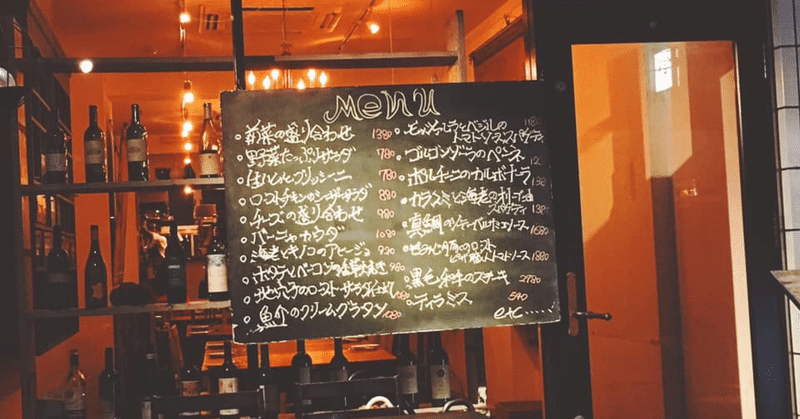 MENU
○前菜の盛り合わせ 1380
○野菜たっぷりサラダ 780
○生ハムとグリッシーニ 780
○ローストチキンのシーザーサラダ 880
○チーズの盛り合わせ 980
○バーニャカウダ 1080
○海老とキノコのアヒージョ 920
○ホタテとベーコンの 980
ローストサラダ仕立て
○魚介のクリームグラタン
○モッツァレラとバジルの
トマトソーススパゲティ
○ゴルゴンゾーラのペンネ
○ポルチーニのカルボナーラ
○カラスミと海老のオイル
スパゲティ
○真鯛のソテーバルサミコソース 1680
ロースト
トマトソース 1880
○黒毛和牛のステーキ 2780
○ティラミス 540
etc.....